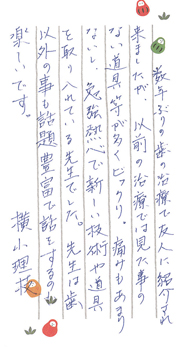 数年ぶりの歯の治療で友人に紹介され
来ましたが、以前の治療では見た事の
ない道具等が多くビックリ!痛みもあまり
ないし、勉強熱心で新しい技術や道具
を取り入れている先生でした。先生は歯
以外の事も話題豊富で話をするの
楽しいです。
横小理枝